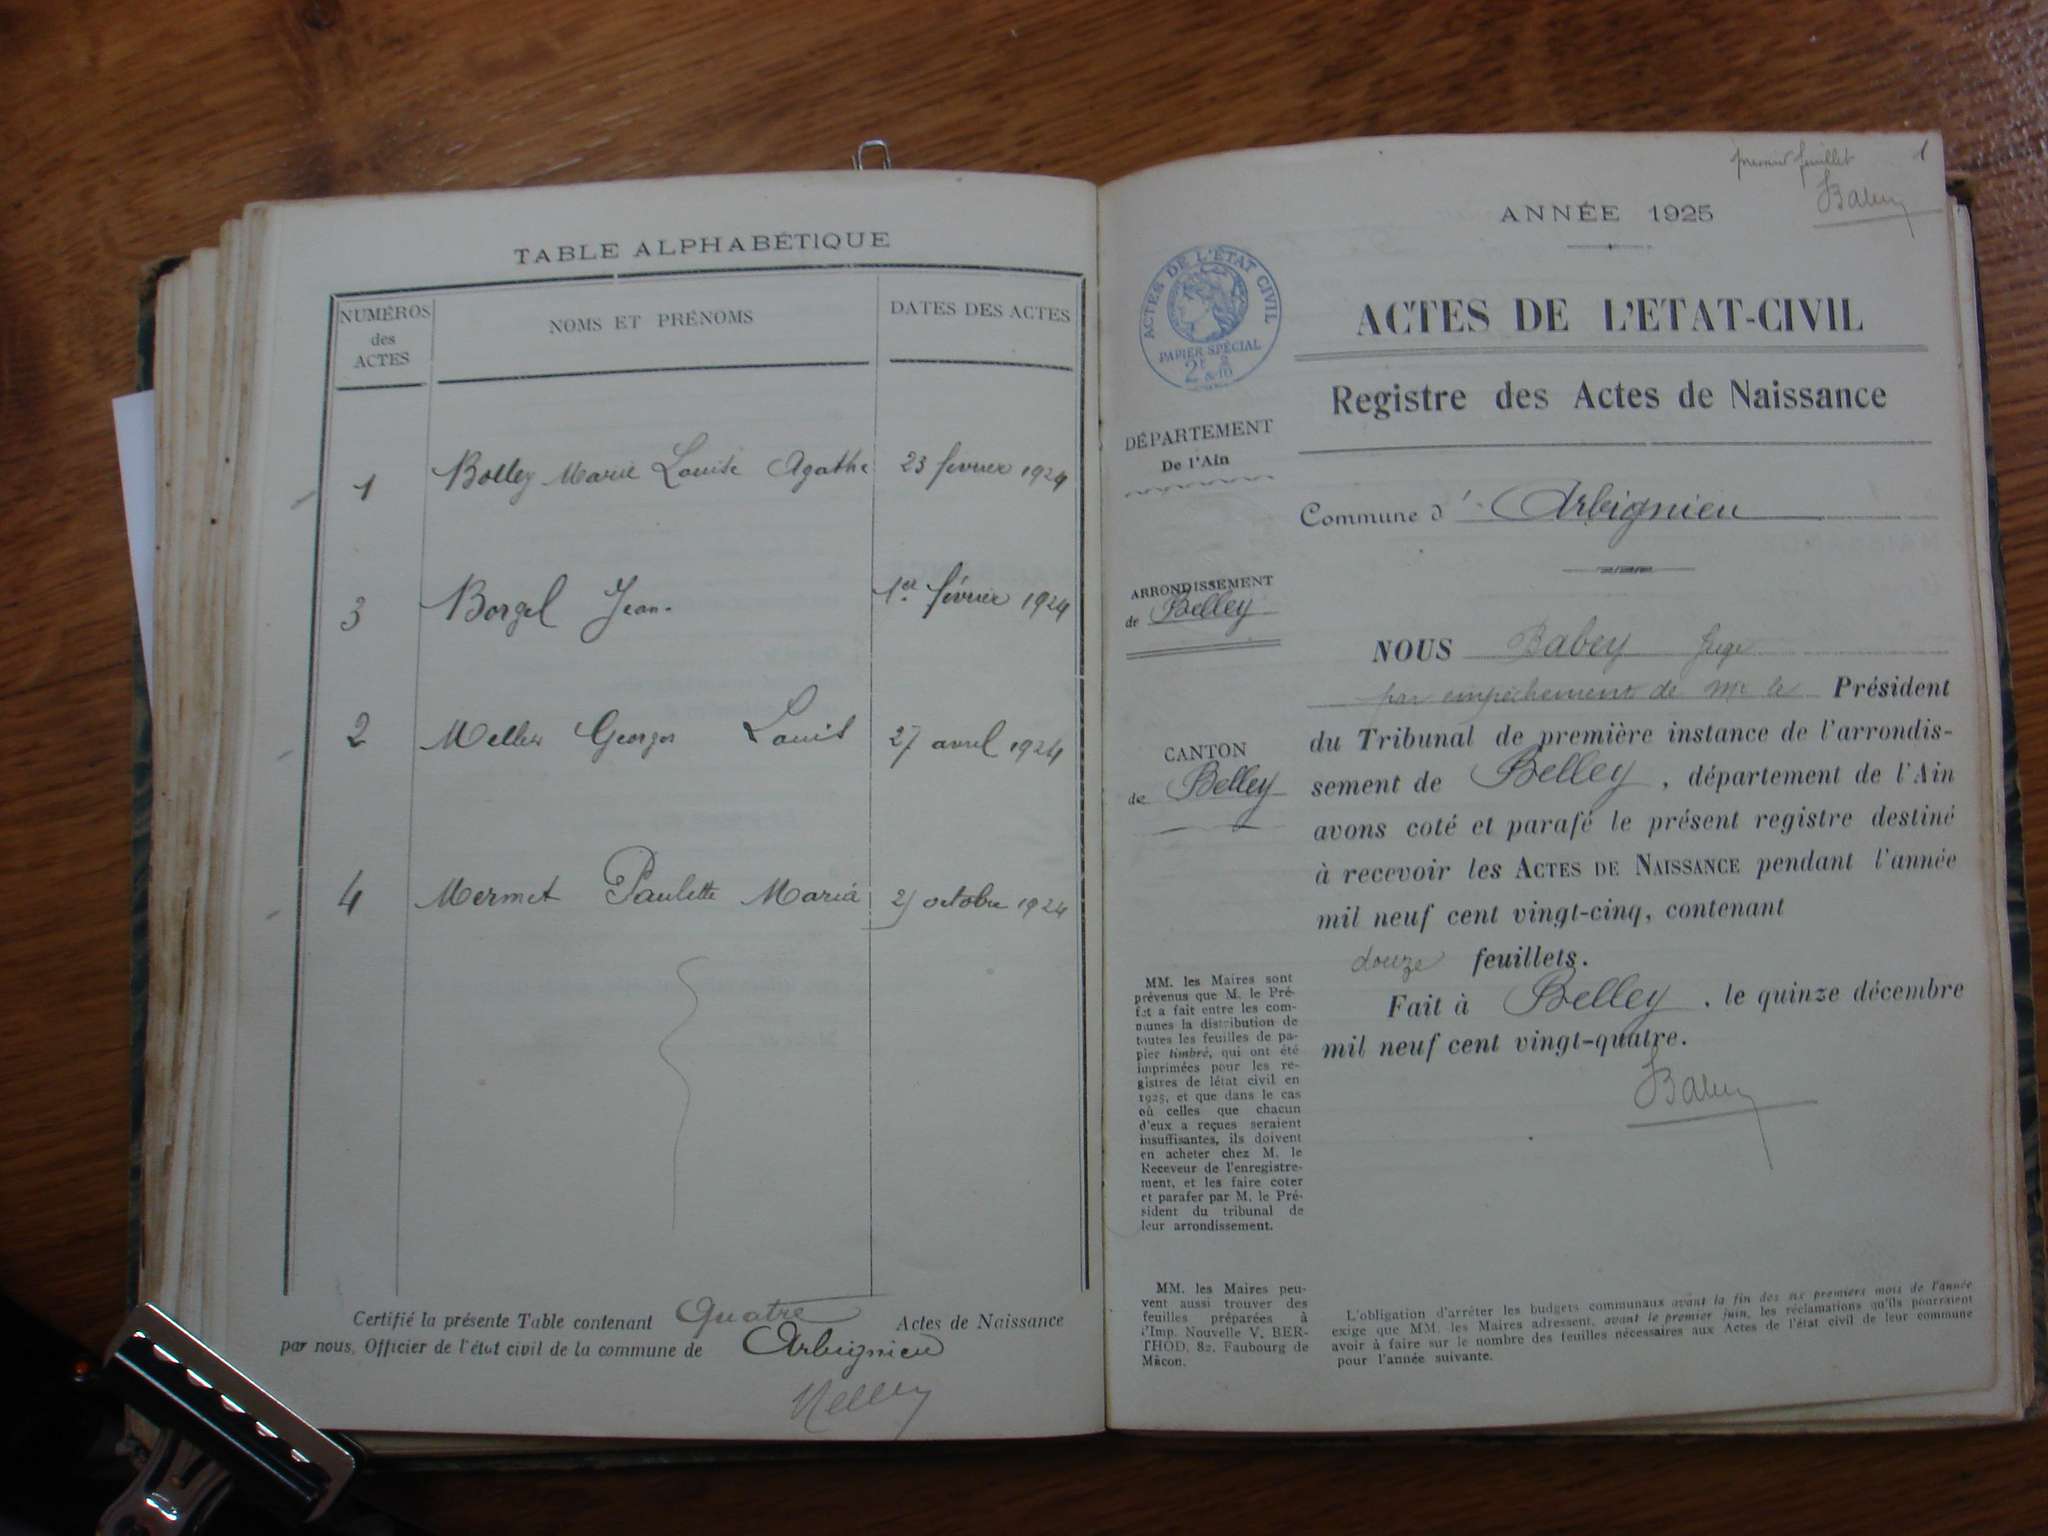 TABLE ALPHABÉTIQUE
NUMÉROS
des
ACTES
NOMS ET PRÉNOMS
DATES DES ACTES
1 Bolley Marie Louise Agathe 23 fevrier 1924
3 Borgel Jean. 1er février 1924
2 Georges Louis 27 avril 1924
4 Mermet Paulette Maria octobre 1924
Certifié la présente Table contenant Quatre Actes de Naissance
par nous, Officier de l'état civil de la commune de Arbignieu
premier feuillet 1
Babey
ANNÉE 1925
ACTES DE L'ÉTAT CIVIL
PAPIER SPÉCIAL
ACTES DE L'ETAT-CIVIL
Registre des Actes de Naissance
DÉPARTEMENT
De l'Ain
Commune d' Arbignieu
ARRONDISSEMENT
de Belley
CANTON
de Belley
NOUS Babey Juge
par empêchement de Mr le Président
du Tribunal de première instance de l'arrondis-
sement de Belley, département de l'Ain
avons coté et parafé le présent registre destiné
à recevoir les ACTES DE NAISSANCE pendant l'année
mil neuf cent vingt-cinq, contenant
douze feuillets.
Fait à Belley, le quinze décembre
mil neuf cent vingt-quatre.
Babey
MM. les Maires sont
prévenus que M. le Pré-
fet a fait entre les com-
munes la distribution de
toutes les feuilles de pa-
pier timbré, qui ont été
imprimées pour les re-
gistres de létat civil en
1925, et que dans le cas
où celles que chacun
d'eux a reçues seraient
insuffisantes, ils doivent
en acheter chez M. le
Receveur de l'enregistre-
ment, et les faire coter
et parafer par M. le Pré-
sident du tribunal de
leur arrondissement.
MM. les Maires peu-
vent aussi trouver des
feuilles préparées à
l'Imp. Nouvelle V. BER-
THOD, 82, Faubourg de
Mâcon.
L'obligation d'arrêter les budgets communaux avant la fin des six premiers mois de l'année
exige que MM. les Maires adressent, avant le premier juin, les réclamations qu'ils pourraient
avoir à faire sur le nombre des feuilles nécessaires aux Actes de l'état civil de leur commune
pour l'année suivante.